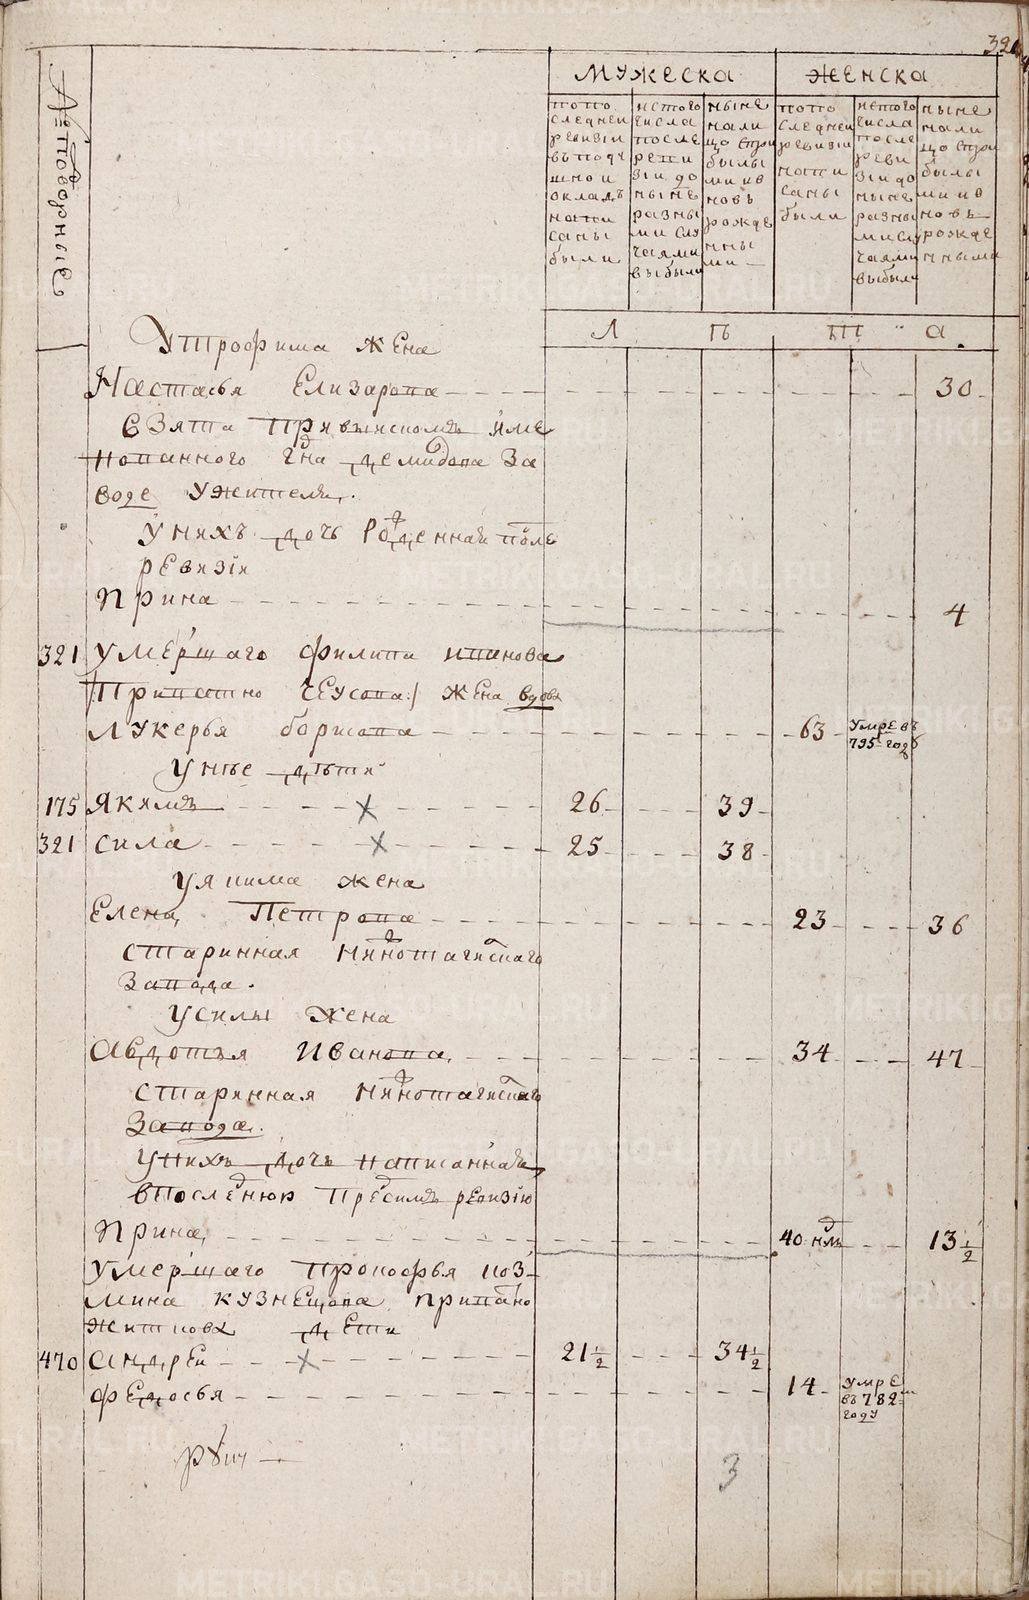 № подворные
МУЖЕСКА
ЖЕНСКА
попо
следнеи
ревизiи
въподу
шно и
окладъ
написаны
были
истого
числа
после
реви
зiи до
ныне
разны
ми слу
чаями
выбыли
ныне
нали
цо спри
былы
ми ив
новь
рожде
нны
ми
попо
следнеи
ревизiи
написаны
были
истого
числа
после
реви
зiи до
ныне
разны
ми слу
чаями
выбыли
ныне
нали
цо спри
былы
ми ив
новь
рожде
нными
Л П Т А
Утрофима жена
Настасья Елизарова 30
взята име
нованного гдна демидова за
воде ужителя
униxъ дочь рожденная после
ревизiи
Ирина 4
321 умершаго филипа иванова
/: прозвано чеусова :/ жена вдова
Лукерья борисова 63 умре въ 795 году
унее дети
175 Якимъ 26 39
321 Сила 25 38
Уякима жена
Елена Петрова 23 36
старинная нижнотагилскаго
завода.
Усилы жена
Авдотья Иванова 34 47
старинная нижнотагилскаго
завода.
униxъ дочь написанная
впоследнюю предсимъ ревизiю
Ирина 40 ндль 13 1/2
умершаго прокофья коз
мина кузнецова
дети
470 андреи 21 1/2 34 1/2
федосья 14 умре въ 782м году
3
METRIKI.GASO-URAL.RU